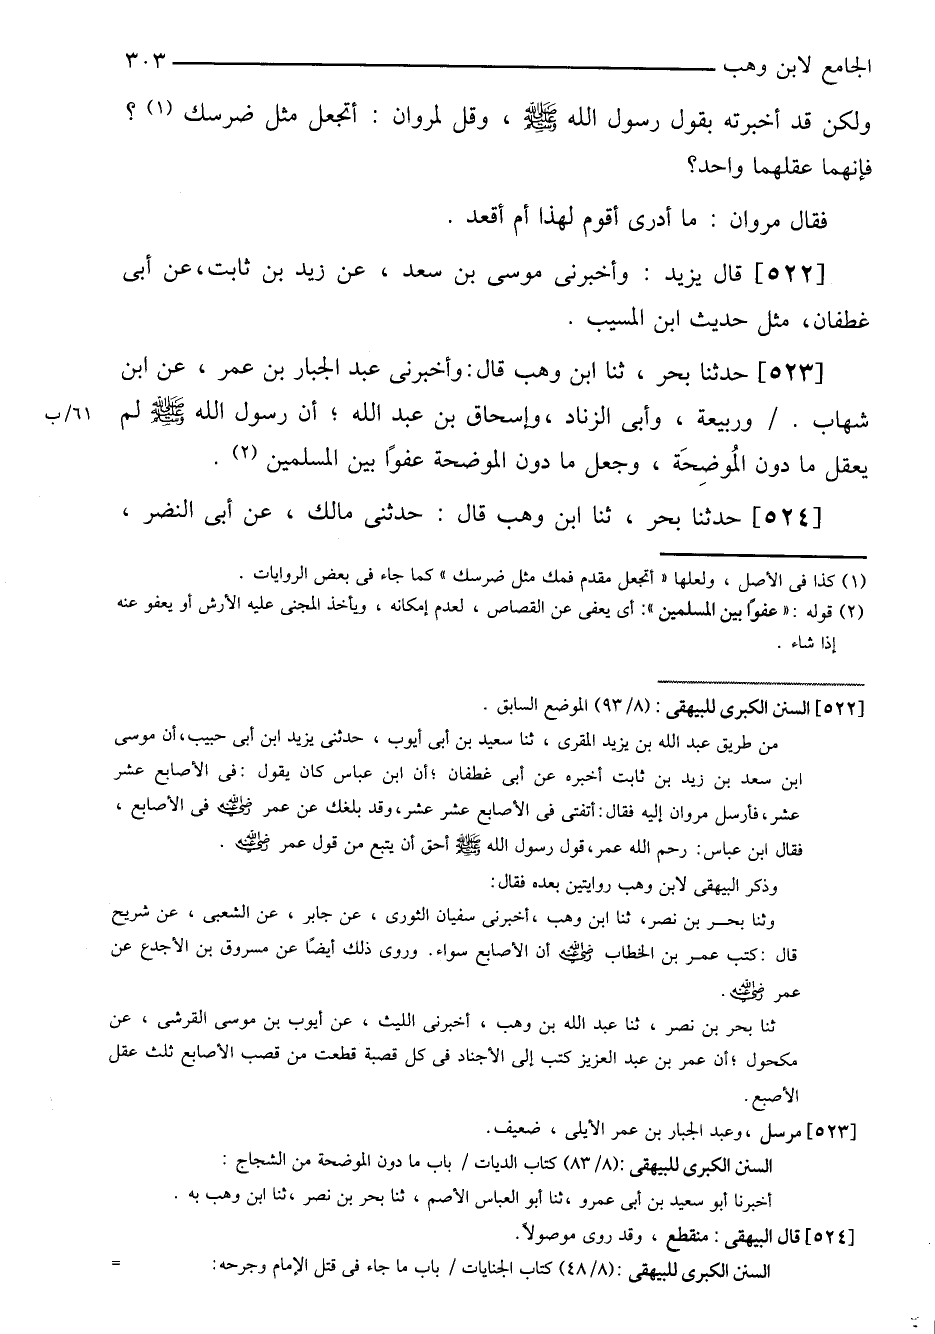 الجامع لابن وهب ــــــــــــــــــــــــــــــــ ٣٠٣
ولكن قد أخبرته بقول رسول الله ﷺ ، وقل لمروان : أتجعل مثل ضرسك (١) ؟
فإنهما عقلهما واحد؟
فقال مروان : ما أدرى أقوم لهذا أم أقعد .
[٥٢٢] قال يزيد : وأخبرنى موسى بن سعد ، عن زيد بن ثابت،عن أبى
غطفان، مثل حديث ابن المسيب .
[٥٢٣] حدثنا بحر ، ثنا ابن وهب قال:وأخبرنى عبد الجبار بن عمر ، عن ابن
شهاب . / وربيعة ، وأبى الزناد ،وإسحاق بن عبد الله ؛ أن رسول الله ﷺ لم ٦١/ب
يعقل ما دون المُوضِحَة ، وجعل ما دون الموضحة عفوًا بين المسلمين (٢) .
[٥٢٤] حدثنا بحر ، ثنا ابن وهب قال : حدثنى مالك ، عن أبى النضر ،
(١) كذا فى الأصل ، ولعلها « أتجعل مقدم فمك مثل ضرسك » كما جاء فى بعض الروايات .
(٢) قوله :« عفوًا بين المسلمين »: أى يعفى عن القصاص ، لعدم إمكانه ، ويأخذ المجنى عليه الأرش أو يعفو عنه
إذا شاء .
[٥٢٢] السنن الكبرى للبيهقى : (٨/ ٩٣) الموضع السابق .
من طريق عبد الله بن يزيد المقرى ، ثنا سعيد بن أبى أيوب ، حدثنى يزيد ابن أبى حبيب،أن موسى
ابن سعد بن زيد بن ثابت أخبره عن أبى غطفان ؛أن ابن عباس كان يقول :فى الأصابع عشر
عشر،فأرسل مروان إليه فقال:أتفتى فى الأصابع عشر عشر،وقد بلغك عن عمر رضي الله عنه فى الأصابع ،
فقال ابن عباس: رحم الله عمر،قول رسول الله ﷺ أحق أن يتبع من قول عمر رضي الله عنه .
وذكر البيهقى لابن وهب روايتين بعده فقال:
وثنا بحــر بن نصر، ثنا ابن وهب ،أخبرنى سفيان الثورى ، عن جابر ، عن الشعبى ، عن شريح
قال :كتب عمـر بن الخطاب رضي الله عنه أن الأصابع سواء. وروى ذلك أيضًا عن مسروق بن الأجدع عن
عمر رضي الله عنه .
ثنا بحر بن نصر ، ثنا عبد الله بن وهب ، أخبرنى الليث ، عن أيوب بن موسى القرشى ، عن
مكحول ؛أن عمر بن عبد العزيز كتب إلى الأجناد فى كل قصبة قطعت من قصب الأصابع ثلث عقل
الأصبع.
[٥٢٣] مرسل ،وعبد الجبار بن عمر الأيلى ، ضعيف.
السنن الكبرى للبيهقى :(٨/ ٨٣) كتاب الديات / باب ما دون الموضحة من الشجاج :
أخبرنا أبو سعيد بن أبى عمرو ،ثنا أبو العباس الأصم ، ثنا بحر بن نصر ،ثنا ابن وهب به .
[٥٢٤] قال البيهقى : منقطع ، وقد روى موصولاً.
السنن الكبرى للبيهقى :(٨/ ٤٨) كتاب الجنايات / باب ما جاء فى قتل الإمام وجرحه: =